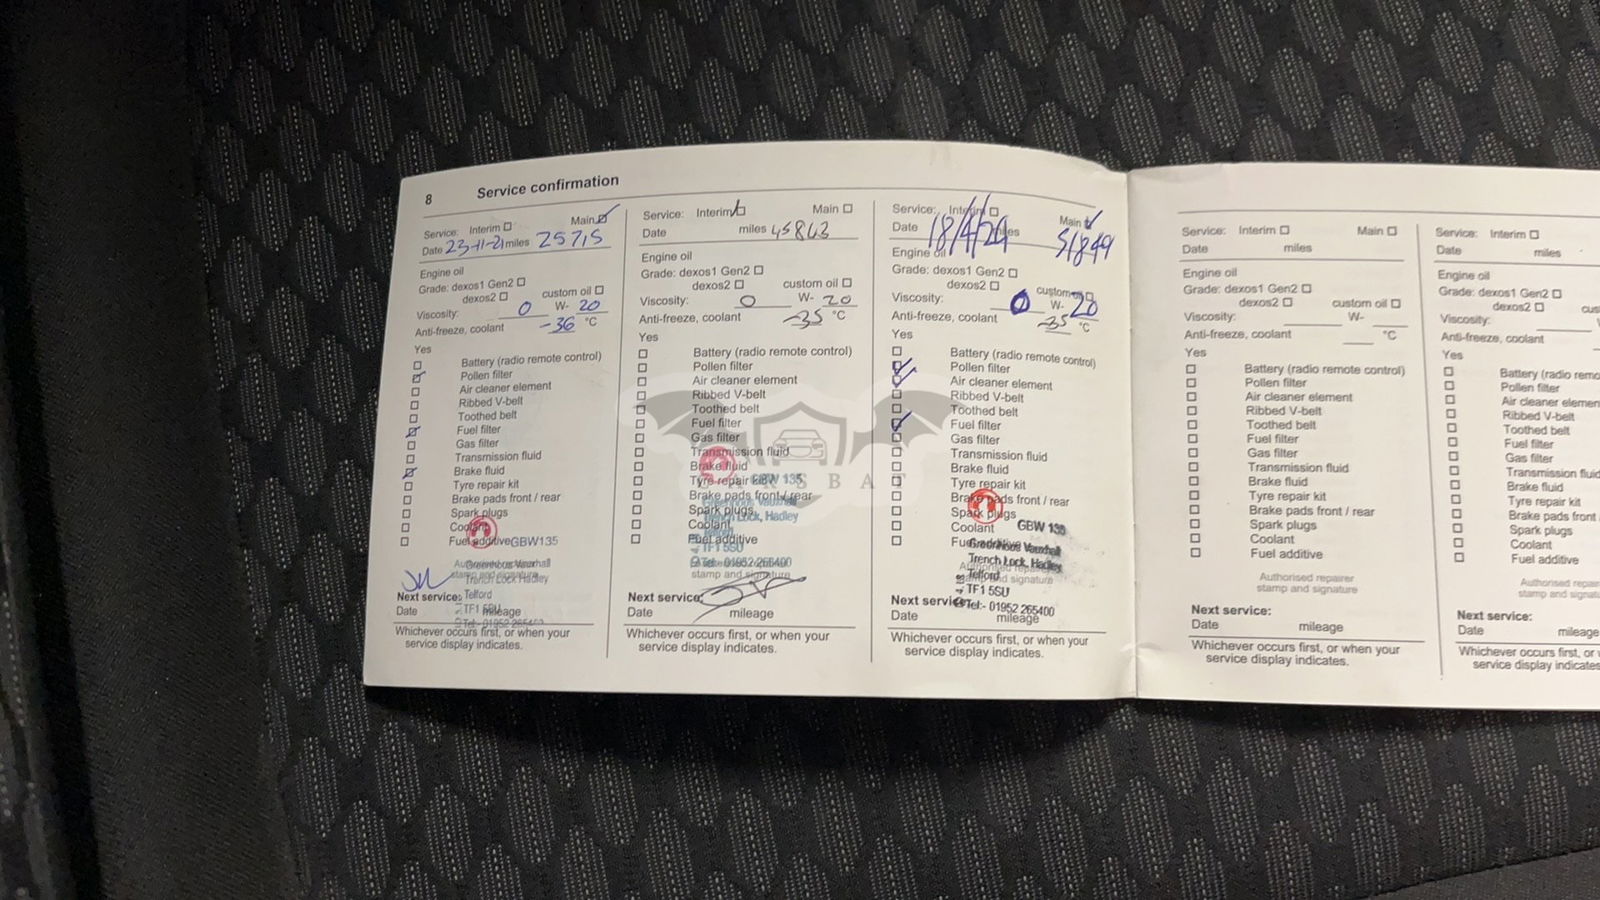 8 Service confirmation
Service: Interim Main
Date 23-11-21 miles 25715
Engine oil
Grade: dexos1 Gen2
dexos2 custom oil
Viscosity: 0 W- 20
Anti-freeze, coolant -36 °C
Yes
Battery (radio remote control)
Pollen filter
Air cleaner element
Ribbed V-belt
Toothed belt
Fuel filter
Gas filter
Transmission fluid
Brake fluid
Tyre repair kit
Brake pads front / rear
Spark plugs
Coolant
Fuel additive GBW135
Authorised repairer
Greenhous Vauxhall
stamp and signature
Trench Lock, Hadley
Next service: Telford
Date TF1 5SU mileage
Tel:- 01952 265400
Whichever occurs first, or when your
service display indicates.
Service: Interim Main
Date miles 45863
Engine oil
Grade: dexos1 Gen2
dexos2 custom oil
Viscosity: 0 W- 20
Anti-freeze, coolant -35 °C
Yes
Battery (radio remote control)
Pollen filter
Air cleaner element
Ribbed V-belt
Toothed belt
Fuel filter
Gas filter
Transmission fluid
Brake fluid
Tyre repair kit GBW 135
Brake pads front / rear
Greenhous Vauxhall
Spark plugs
Trench Lock, Hadley
Coolant
Telford
Fuel additive
TF1 5SU
Tel:- 01952 265400
stamp and signature
Next service:
Date mileage
Whichever occurs first, or when your
service display indicates.
Service: Interim Main
Date 18/4/24 miles 51849
Engine oil
Grade: dexos1 Gen2
dexos2 custom oil
Viscosity: 0 W- 20
Anti-freeze, coolant -35 °C
Yes
Battery (radio remote control)
Pollen filter
Air cleaner element
Ribbed V-belt
Toothed belt
Fuel filter
Gas filter
Transmission fluid
Brake fluid
Tyre repair kit
Brake pads front / rear
Spark plugs
Coolant GBW 135
Fuel additive
Greenhous Vauxhall
Trench Lock, Hadley
Authorised repairer
Telford
stamp and signature
TF1 5SU
Next service: Tel:- 01952 265400
Date mileage
Whichever occurs first, or when your
service display indicates.
CARSBAT
Service: Interim Main
Date miles
Engine oil
Grade: dexos1 Gen2
dexos2 custom oil
Viscosity: W-
Anti-freeze, coolant °C
Yes
Battery (radio remote control)
Pollen filter
Air cleaner element
Ribbed V-belt
Toothed belt
Fuel filter
Gas filter
Transmission fluid
Brake fluid
Tyre repair kit
Brake pads front / rear
Spark plugs
Coolant
Fuel additive
Authorised repairer
stamp and signature
Next service:
Date mileage
Whichever occurs first, or when your
service display indicates.
Service: Interim
Date miles
Engine oil
Grade: dexos1 Gen2
dexos2 cus
Viscosity:
Anti-freeze, coolant
Yes
Battery (radio remo
Pollen filter
Air cleaner elemen
Ribbed V-belt
Toothed belt
Fuel filter
Gas filter
Transmission fluid
Brake fluid
Tyre repair kit
Brake pads front
Spark plugs
Coolant
Fuel additive
Authorised repair
stamp and signatu
Next service:
Date mileage
Whichever occurs first, or
service display indicates